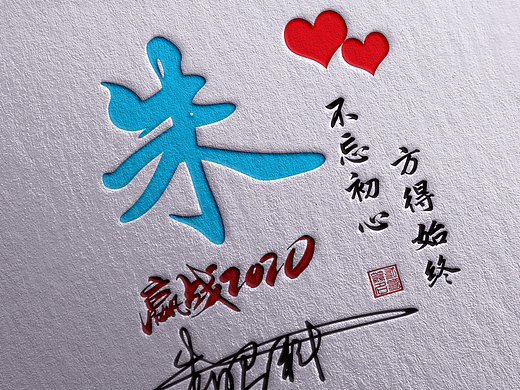 朱
不忘初心
方得始终
赢战2020